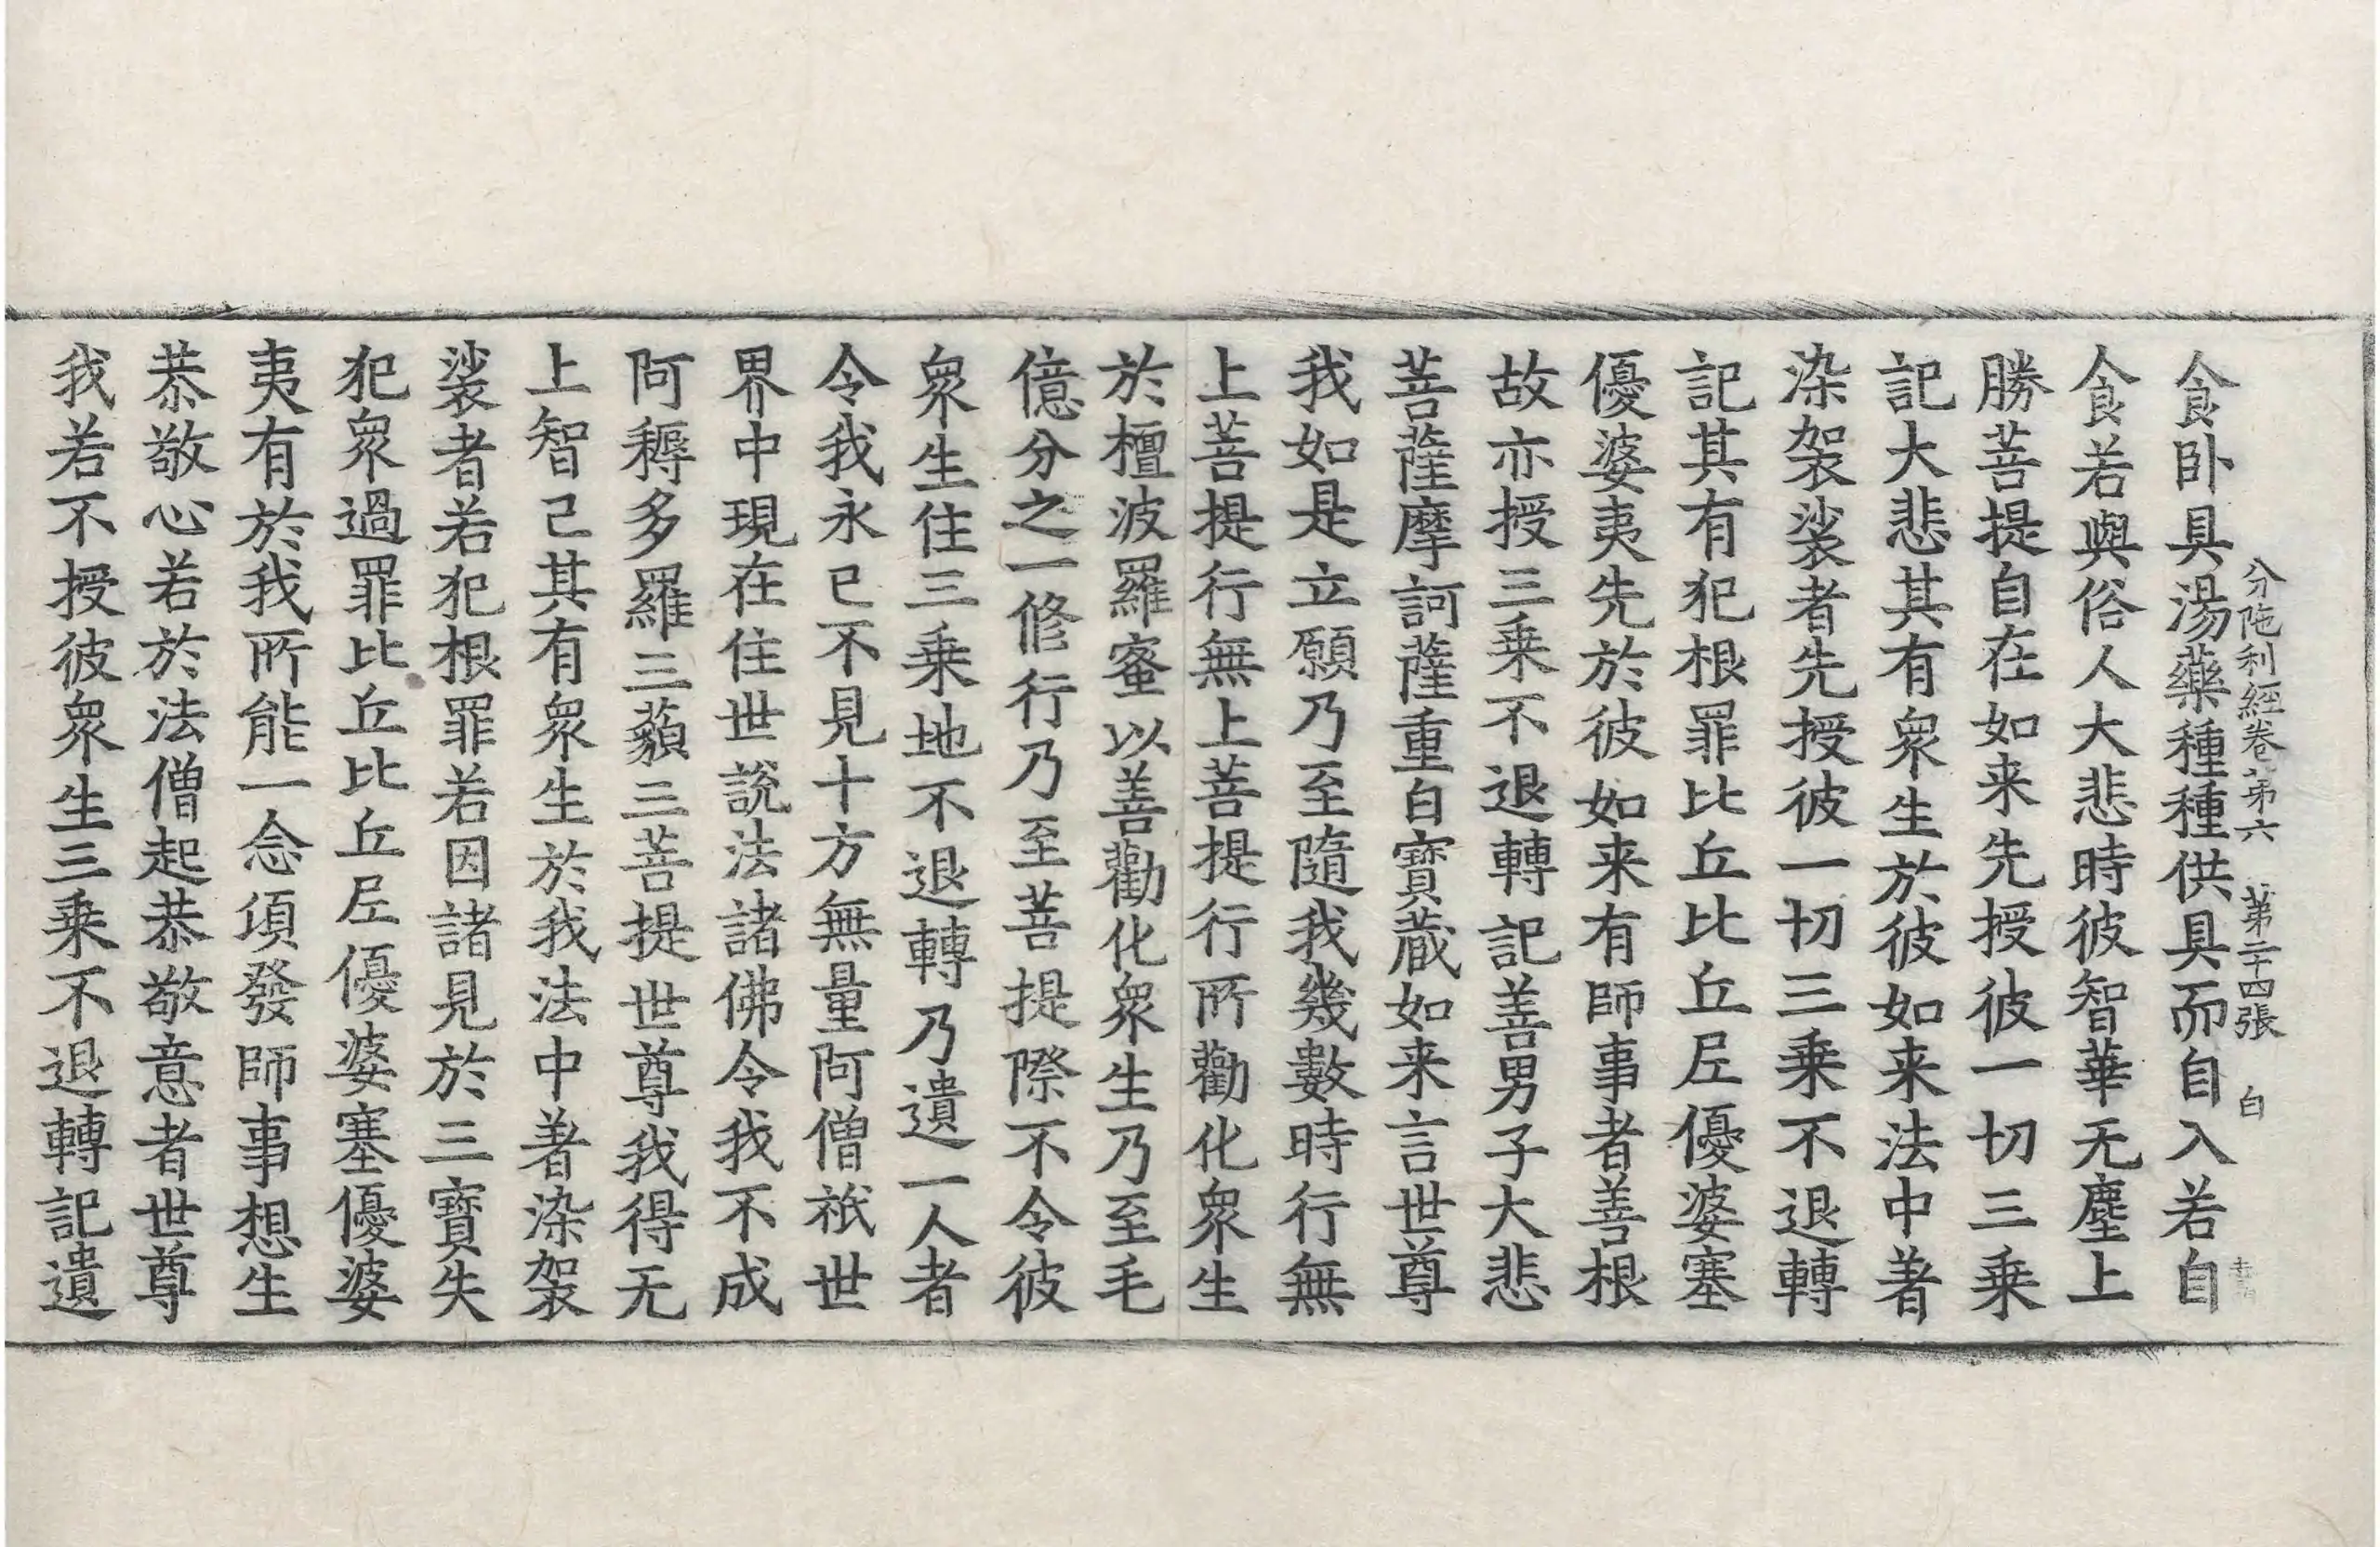 分陁利經卷第六 第二十四張 白
食卧具湯藥種種供具而自入若自
食若與俗人大悲時彼智華无塵上
勝菩提自在如来先授彼一切三乘
記大悲其有衆生於彼如来法中著
染袈裟者先授彼一切三乘不退轉
記其有犯根罪比丘比丘尼優婆塞
優婆夷先於彼如来有師事者善根
故亦授三乘不退轉記善男子大悲
菩薩摩訶薩重白寶藏如来言世尊
我如是立願乃至隨我幾數時行無
上菩提行無上菩提行所勸化衆生
於檀波羅蜜以善勸化衆生乃至毛
億分之一修行乃至菩提際不令彼
衆生住三乘地不退轉乃遺一人者
令我永已不見十方無量阿僧祇世
界中現在住世說法諸佛令我不成
阿耨多羅三藐三菩提世尊我得无
上智已其有衆生於我法中著染袈
裟者若犯根罪若因諸見於三寶失
犯衆過罪比丘比丘尼優婆塞優婆
夷有於我所能一念項發師事想生
恭敬心若於法僧起恭敬意者世尊
我若不授彼衆生三乘不退轉記遺